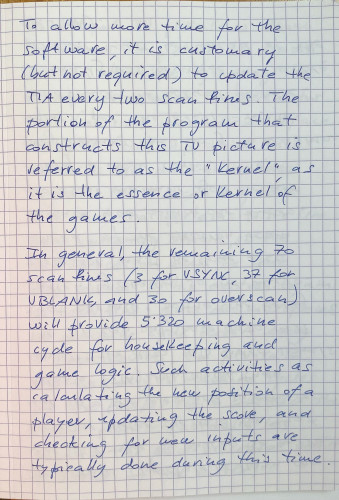 To allow more time for the
software, it is customary
(but not required) to update the
TIA every two scan lines. The
portion of the program that
constructs this TV picture is
referred to as the "Kernel", as
it is the essence or Kernel of
the games.
In general, the remaining 70
scan lines (3 for VSYNC, 37 for
VBLANK, and 30 for overscan)
will provide 5.320 machine
cycle for housekeeping and
game logic. Such activities as
calculating the new position of a
player, updating the score, and
checking for new inputs are
typically done during this time.